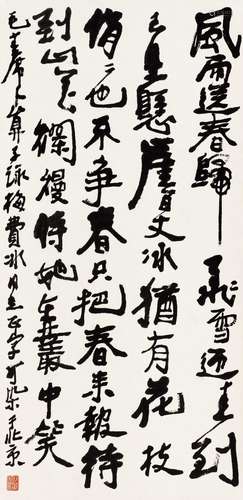 風雨送春歸飛雪迎春到
已是懸崖百丈冰猶有花枝
俏〻也不争春只把春来報待
到山花爛熳時她在叢中笑
毛主席卜算子詠梅費冰同志正字可染